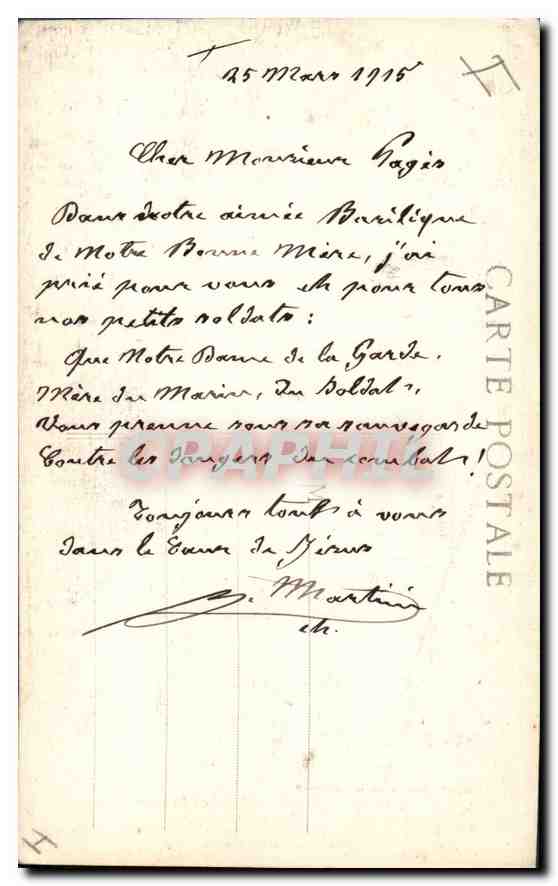 25 Mars 1915
Cher Monsieur Pagès
Dans votre aimée Basilique
de Notre Bonne Mère, j'ai
prié pour vous et pour tous
nos petits soldats :
Que Notre Dame de la Garde,
Mère du Marin, du Soldat,
Vous prenne sous sa sauvegarde
Contre les dangers du combat !
Toujours tout à vous
dans le Cœur de Jésus
Martini
ch.
CARTE POSTALE
CPAPHIL